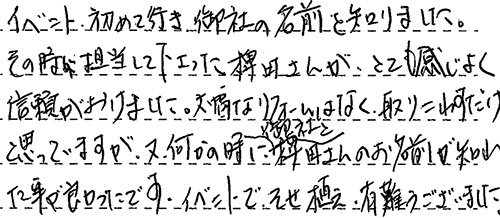 イベント初めて行き御社の名前を知りました。
その時に担当して下さった樺田さんが、とても感じよく
信頼がおけました。大幅なリフォームはなく、取りこわすだけ
と思っていますが、又何かの時に御社と樺田さんのお名前が知れ
た事が良かったです。イベントで 植え 有難うございました